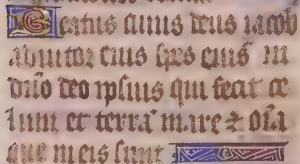 Beatus cuius deus iacob
adiutor eius spes eius in
dño deo ipsius qui fecit ce
lum et terrã mare ⁊ oĩa
que in eis sunt